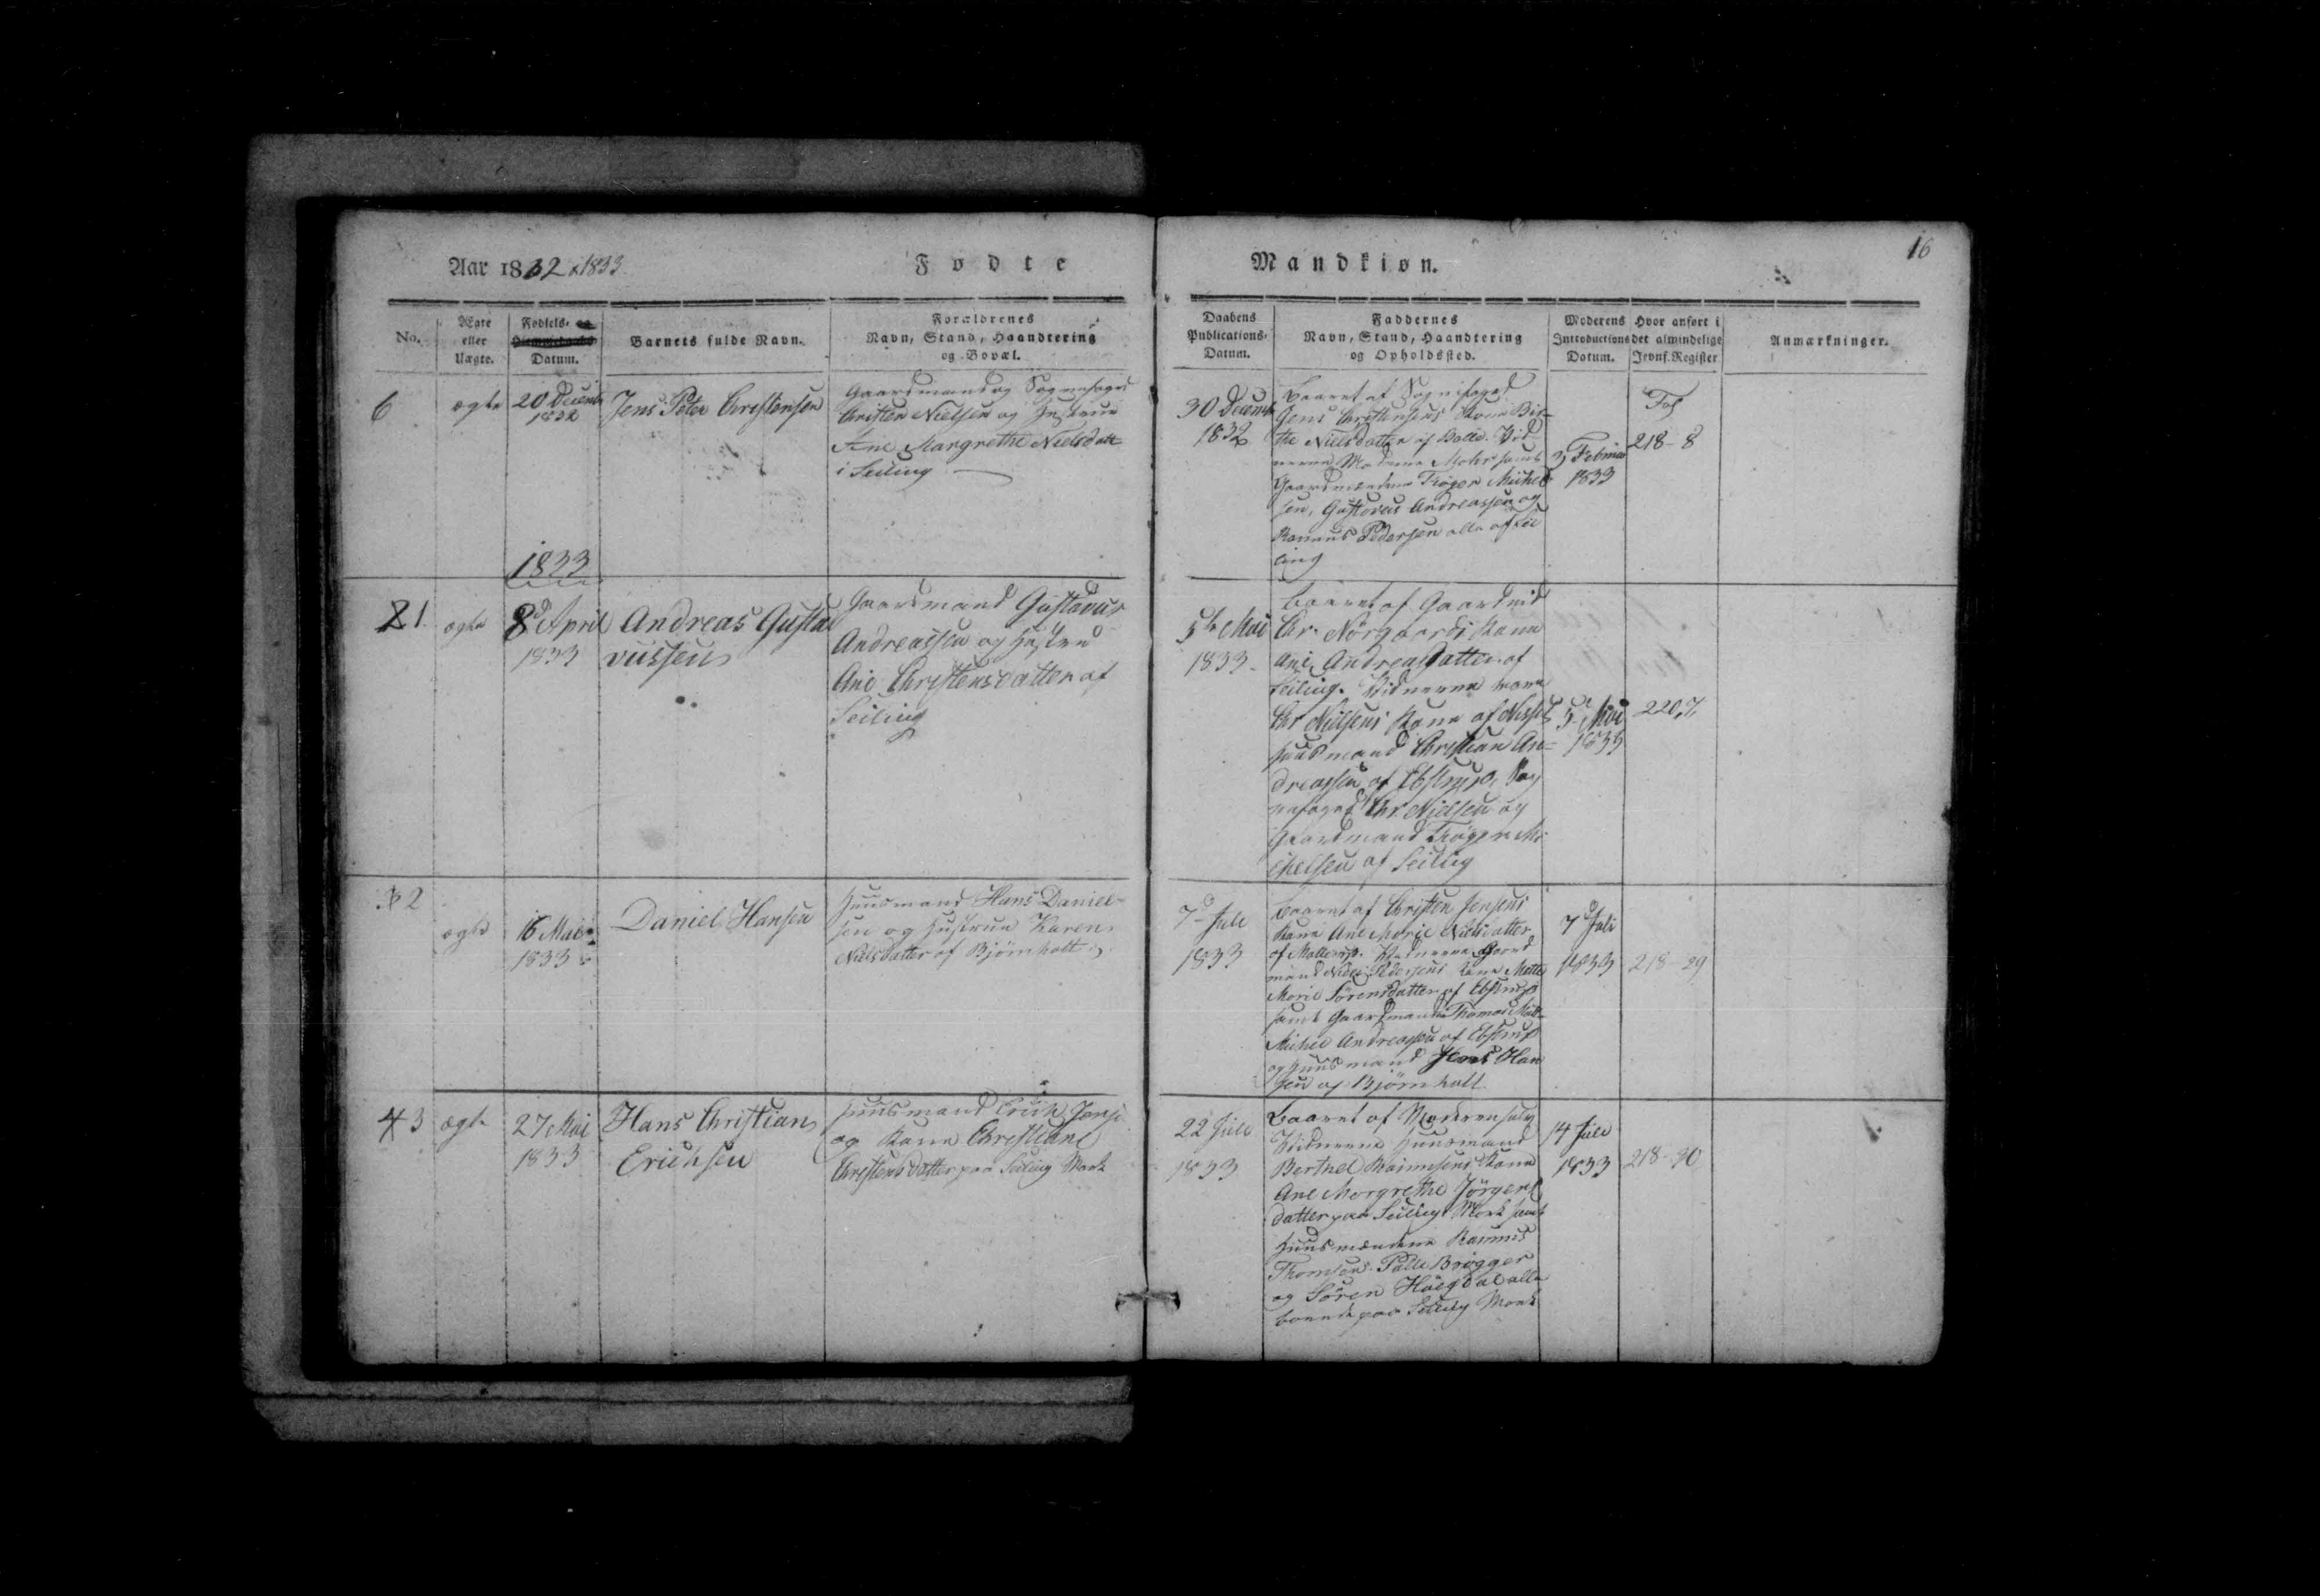 Aar 1832 & 1833
Fødte
Mandkiøn.
16
No.
Ægte
eller
Uægte.
Fødsels- og
Datum.
Barnets fulde Navn.
Forældrenes
Navn, Stand, Haandtering
og Bopæl.
Daabens
Publications-
Datum.
Faddernes
Navn, Stand, Haandtering
og Opholdssted.
Moderens
Introductions
Datum.
Hvor anført i
det almindelige
Jevnf. Register
Anmærkninger.
6
ægte
20 Decemb
1832
Jens Peter Christensen
Gaardmand og Sognefoged
Christen Nielsen og Hustrue
Ane Margrethe Nielsdatt
i Seiling
30 Decemb
1832
Baaret af Sognefoged
Jens Christensens Kone Bir-
the Nielsdatter af Balle. Vid
nerne Madame Mohr samt
Gaardmændene Trøger Michel
sen, Gustavus Andreassen og
Rasmus Pedersen alle af Sei
ling
3 Februar
1833
Fol
218-8
1833
21.
ægte
8d April
1833
Andreas Gusta
vussen
Gaardmand Gustavus
Andreassen og Hustrue
Ane Christensdatter af
Seiling
5te Mai
1833.
baaret af Gaardmd
Chr. Nørgaards Kone
Ane Andreasdatter af
Seiling. Vidnerne vare
Chr Nielsens Kone af
Huusmand Christian An-
dreassen af Ebstrup, Sog
nefoged Chr. Nielsen og
Gaardmand Trøger Mi-
chelsen af Seiling
5 Mai
1833
220,7.
32
ægte
16 Mai
1833
Daniel Hansen
Huusmand Hans Daniel-
sen og Hustrue Karen
Nielsdatter af Bjørnholt
7d Juli
1833
baaret af Christen Jensens
Kone Ane Marie Nielsdatter
af Mollerup. Vidnerne Gaard
mand Niels Pedersens Kone Mette
Marie Sørensdatter af Ebstrup
samt Gaardmand Thomas
Michel Andreassen af Ebstrup
og Huusmand Jens Han
sen af Bjørnholt
7d Juli
1833
218-29
43
ægte
27 Mai
1833
Hans Christian
Erichsen
Huusmand Erich Jens
og Kone Christiane
Christensdatter paa Seiling Mark
22 Juli
1833
Baaret af Moderen selv
Vidnerne Huusmand
Berthel Rasmusens Kone
Ane Margrethe Jørgens
datter paa Seiling Mark samt
Huusmændene Rasmus
Thomsen. Palle Brøgger
og Søren alle
boende paa Seiling Mark
14 Juli
1833
218-30